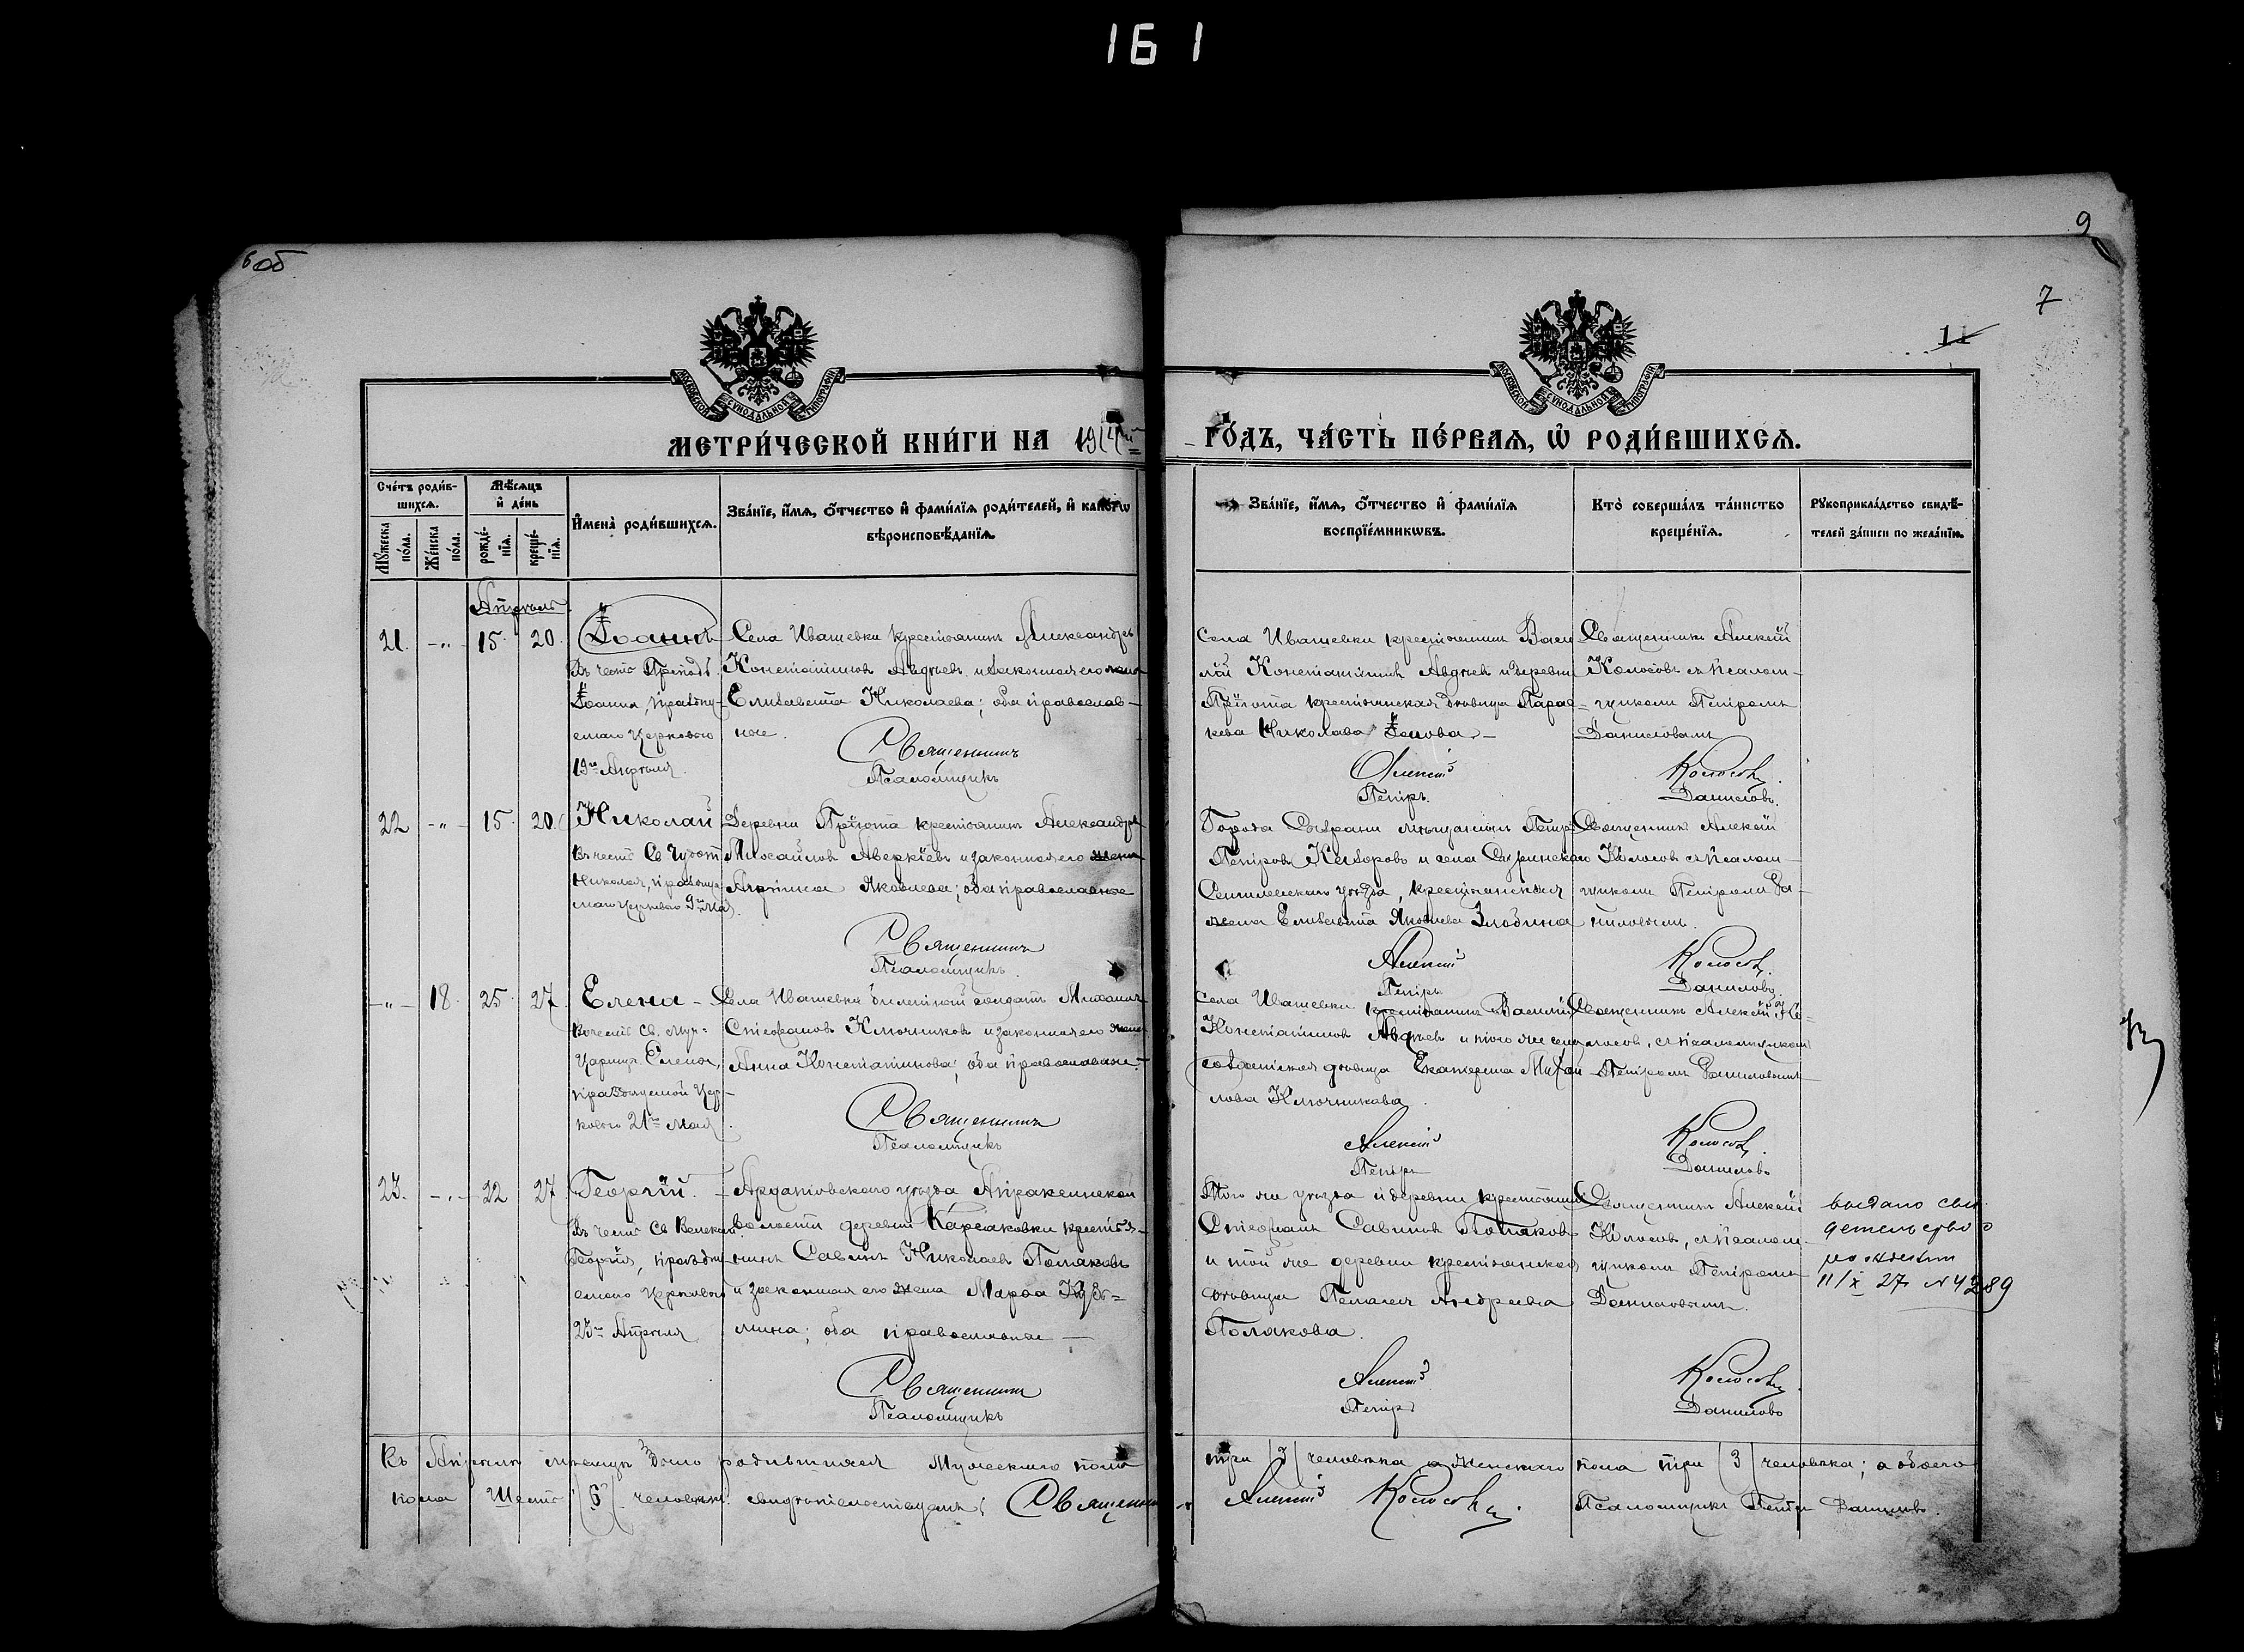 161
6 об
9
7
11
МОСКОВСКОЙ СѴНОДАЛЬНОЙ ТИПОГРАФІИ
МОСКОВСКОЙ СѴНОДАЛЬНОЙ ТИПОГРАФІИ
МЕТРИ́ЧЕСКОЙ КНИ́ГИ НА 1914й
ГО́ДЪ, ЧА́СТЬ ПЕ́РВАѦ, Ѡ҆ РОДИ́ВШИХСѦ.
Сче́тъ роди́вшихсѧ.
Мѹ́жеска по́ла.
Же́нска по́ла.
Мѣ́сѧцъ и҆ де́нь
рожде́нїѧ.
креще́нїѧ.
И҆мена̀ роди́вшихсѧ.
Зва́нїе, и҆́мѧ, ѻ҆́тчество и҆ фами́лїѧ роди́телей, и҆ како́гѡ
вѣроисповѣ́данїѧ.
Зва́нїе, и҆́мѧ, ѻ҆́тчество и҆ фами́лїѧ
воспрїе́мникѡвъ.
Кто̀ соверша́лъ та́инство
креще́нїѧ.
Рѹкоприкла́дство свидѣ́-
телей за́писи по жела́нїю.
Апрѣль
21. -"- 15. 20.
Іоаннъ
Въ честь Препод.
Іоанна, празdну-
емаго Церковью
19го Апрѣля.
Села Ивашевки крестьянинъ Александръ
Константиновъ Авдѣевъ и законная его жена
Елизавета Николаева; оба православ-
ные.
Священникъ
Псаломщикъ
Села Ивашевки крестьянинъ Васи
лій Константиновъ Авдѣевъ и деревни
Пріюта крестьянская дѣвица Парас-
кева Николаева
Алексій
Петръ
Священникъ Алексій
Колосовъ съ псалом-
щикомъ Петромъ
Даниловымъ
Колосовъ.
Даниловъ.
22 -"- 15. 20.
Николай
Въ честь Св. Чудот.
Николая, празднуе-
маго Церковью 9го Мая.
Деревни Пріюта крестьянинъ Александръ
Михайловъ Аверкіевъ и законная его жена
Яковлева; оба православные
Священникъ
Псаломщикъ.
Города Сызрани мѣщанинъ Петръ
Петровъ и села
Сенгилеевскаго уѣзда, крестьянская
жена Елизавета Яковлева Злобина
Алексій
Петръ
Священникъ Алексій
Колосовъ съ псалом-
щикомъ Петромъ Да-
ниловымъ.
Колосовъ.
Даниловъ.
-"- 18. 25. 27
Елена
Въ честь Св.
Царицы Елены,
празднуемой Цер-
ковью 21го Мая.
Села Ивашевки билетный солдатъ Михаилъ
Стефановъ Ключниковъ и законная его жена
Анна Константинова; оба православные.
Священникъ
Псаломщикъ
Села Ивашевки крестьянинъ Василій
Константиновъ Авдѣевъ и того же села
солдатская дѣвица Екатерина Михаи-
лова Ключникова.
Алексій
Петръ
Священникъ Алексій Ко-
лосовъ, съ псаломщикомъ
Петромъ Даниловымъ
Колосовъ.
Даниловъ
23. -"- 22 27
Георгій.
Въ честь Св. Великом.
Георгія, праздну-
емаго Церковью
23го Апрѣля
Ардатовскаго уѣзда Апраксинской
волости деревни Карсаковки крестья-
нинъ Савинъ Николаевъ Поляковъ
и законная его жена Марѳа Кузь-
мина; оба православные
Священникъ
Псаломщикъ
Того же уѣзда и деревни крестьянинъ
Стефанъ Савиновъ Поляковъ
и той же деревни крестьянская
дѣвица Пелагея Андреева
Полякова.
Алексій
Петръ
Священникъ Алексій
Колосовъ, съ псалом-
щикомъ Петромъ
Даниловымъ.
Колосовъ.
Даниловъ
выдано сви
детельство о
рождении
11/X 27 г N 4289
Въ Апрѣлѣ мѣсяцѣ было родившихся Мужескаго пола
три (3) человѣка а Женскаго пола три (3) человѣка; а обоего
пола Шесть (6) человѣкъ. свидѣтельствуемъ: Священникъ
Алексій Колосовъ. Псаломщикъ Петръ Даниловъ.